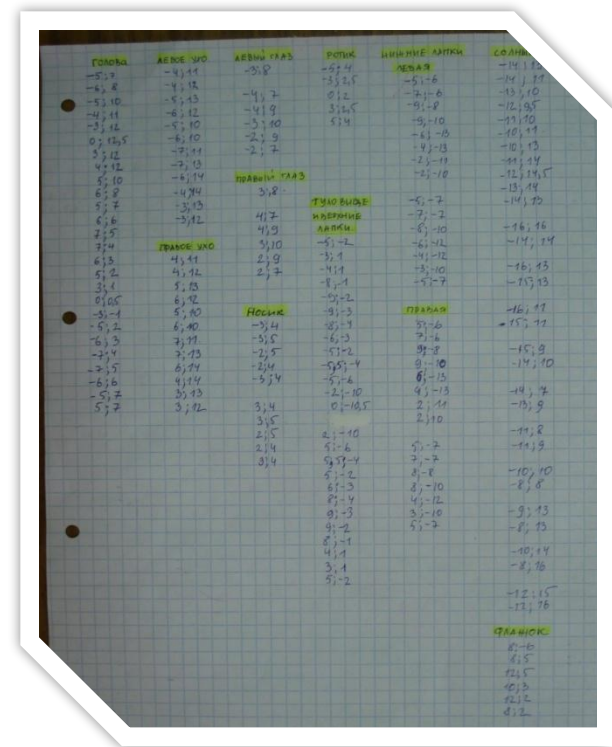 ГОЛОВА
-5; 7
-6; 8
-5; 10
-4; 11
-3; 12
0; 12,5
3; 12
4; 12
5; 10
6; 8
5; 7
6; 6
7; 5
7; 4
6; 3
5; 2
3; 1
0; 0,5
-3; -1
-5; 2
-6; 3
-7; 4
-7; 5
-6; 6
-5; 7
5; 7
ЛЕВОЕ УХО
-4; 11
-4; 12
-5; 13
-6; 12
-5; 10
-6; 10
-7; 11
-7; 13
-6; 14
-4; 14
-3; 13
-3; 12
ПРАВОЕ УХО
4; 11
4; 12
5; 13
6; 12
5; 10
6; 10
7; 11
7; 13
6; 14
4; 14
3; 13
3; 12
ЛЕВЫЙ ГЛАЗ
-3; 8
-4; 7
-4; 9
-3; 10
-2; 9
-2; 7
ПРАВЫЙ ГЛАЗ
3; 8
4; 7
4; 9
3; 10
2; 9
2; 7
НОСИК
-3; 4
-3; 5
-2; 5
-2; 4
-3; 4
3; 4
3; 5
2; 5
2; 4
3; 4
РОТИК
-5; 4
-3; 2,5
0; 2
3; 2,5
5; 4
ТУЛОВИЩЕ
И ВЕРХНИЕ
ЛАПКИ
-5; -2
-3; 1
-4; 1
-8; -1
-9; -2
-9; -3
-8; -4
-6; -3
-5; -2
-5,5; -4
-5; -6
-2; -10
0; -10,5
2; -10
5; -6
5,5; -4
5; -2
6; -3
8; -4
9; -3
9; -2
8; -1
4; 1
3; 1
5; -2
НИЖНИЕ ЛАПКИ
ЛЕВАЯ
-5; -6
-7; -6
-9; -8
-9; -10
-6; -13
-4; -13
-2; -11
-2; -10
-5; -7
-7; -7
-8; -10
-6; -12
-4; -12
-3; -10
-5; -7
ПРАВАЯ
5; -6
7; -6
9; -8
9; -10
6; -13
4; -13
2; 11
2; 10
5; -7
7; -7
8; -8
8; -10
4; -12
3; -10
5; -7
-14; 13
-14; 11
-13; 10
-12; 9,5
-11; 10
-10; 11
-10; 13
-11; 14
-12; 14,5
-13; 14
-14; 13
-16; 16
-14; 14
-16; 13
-15; 13
-16; 11
-15; 11
-15; 9
-14; 10
-14; 7
-13; 9
-11; 8
-11; 9
-10; 10
-8; 8
-9; 13
-8; 13
-10; 14
-8; 16
-12; 15
-12; 16
ФЛАЖОК
8; -6
8; 5
12; 5
10; 3
12; 2
8; 2